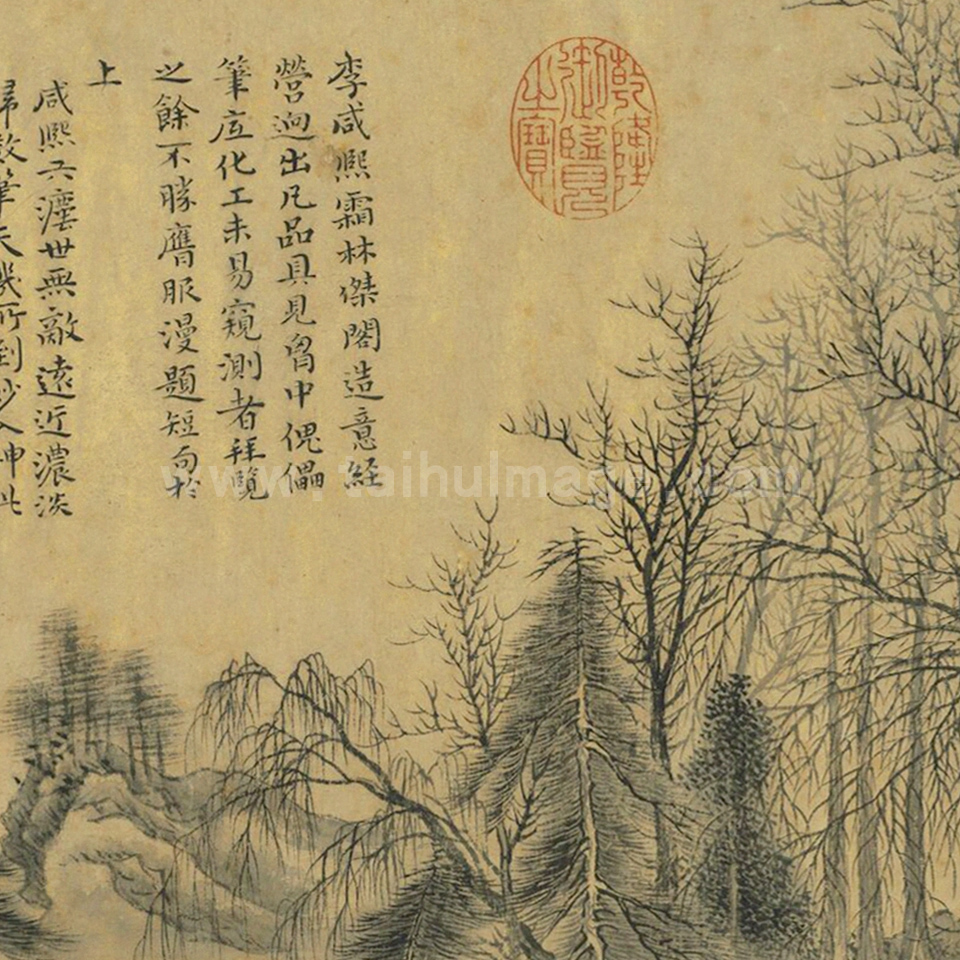 乾隆御覽之寶
李咸熙霜林傑閣造意經
營迥出凡品具見胷中傀儡
筆底化工未易窺測者拜覽
之餘不勝膺服漫題短句於
上
咸熙六灋世無敵遠近濃淡
歸數筆天機所到妙入神此